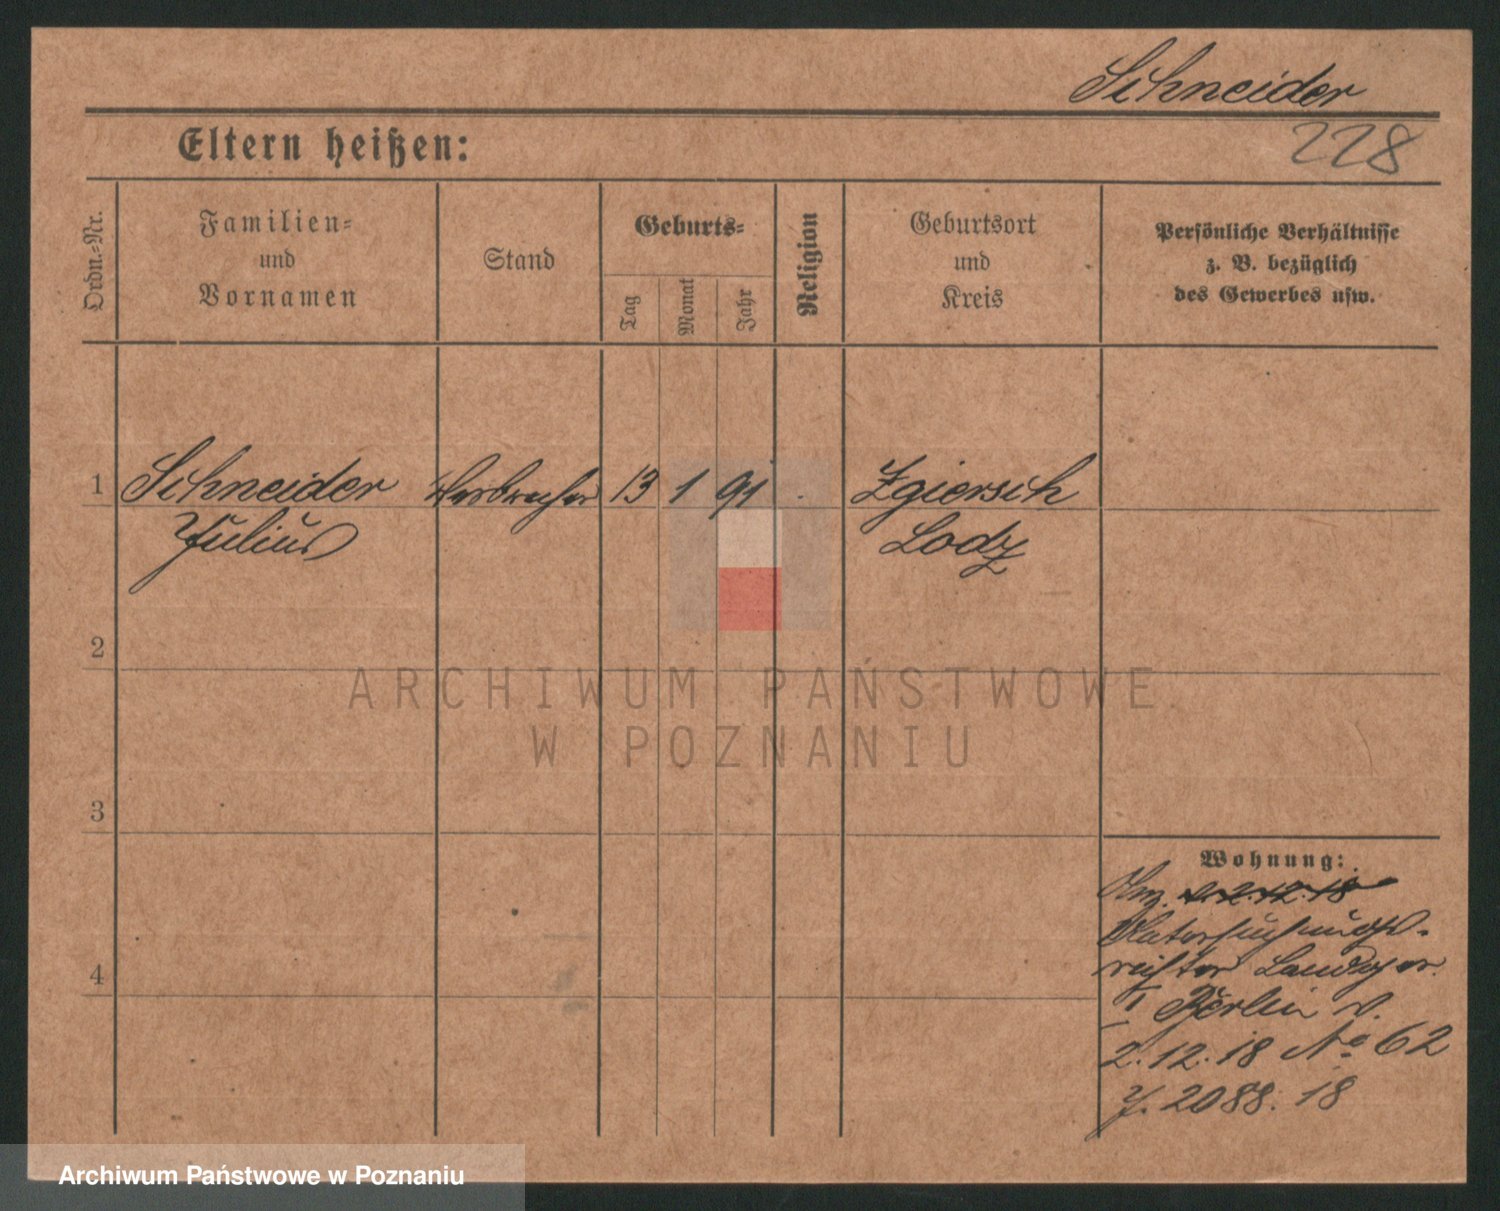 Schneider
Eltern heißen:
228
Ordn.-Nr.
Familien-
und
Vornamen
Stand
Geburts-
Tag
Monat
Jahr
Religion
Geburtsort
und
Kreis
Persönliche Verhältnisse
z. B. bezüglich
des Gewerbes usw.
1 Schneider Verbrecher 13 1 91 Zgiersch
Julius Lodz
2
ARCHIWUM PAŃSTWOWE
W POZNANIU
3
Wohnung:
2.12.18
Untersuchungs-
richter Landger.
I Berlin v.
2.12.18 No 62
J. 2088.18
4
Archiwum Państwowe w Poznaniu